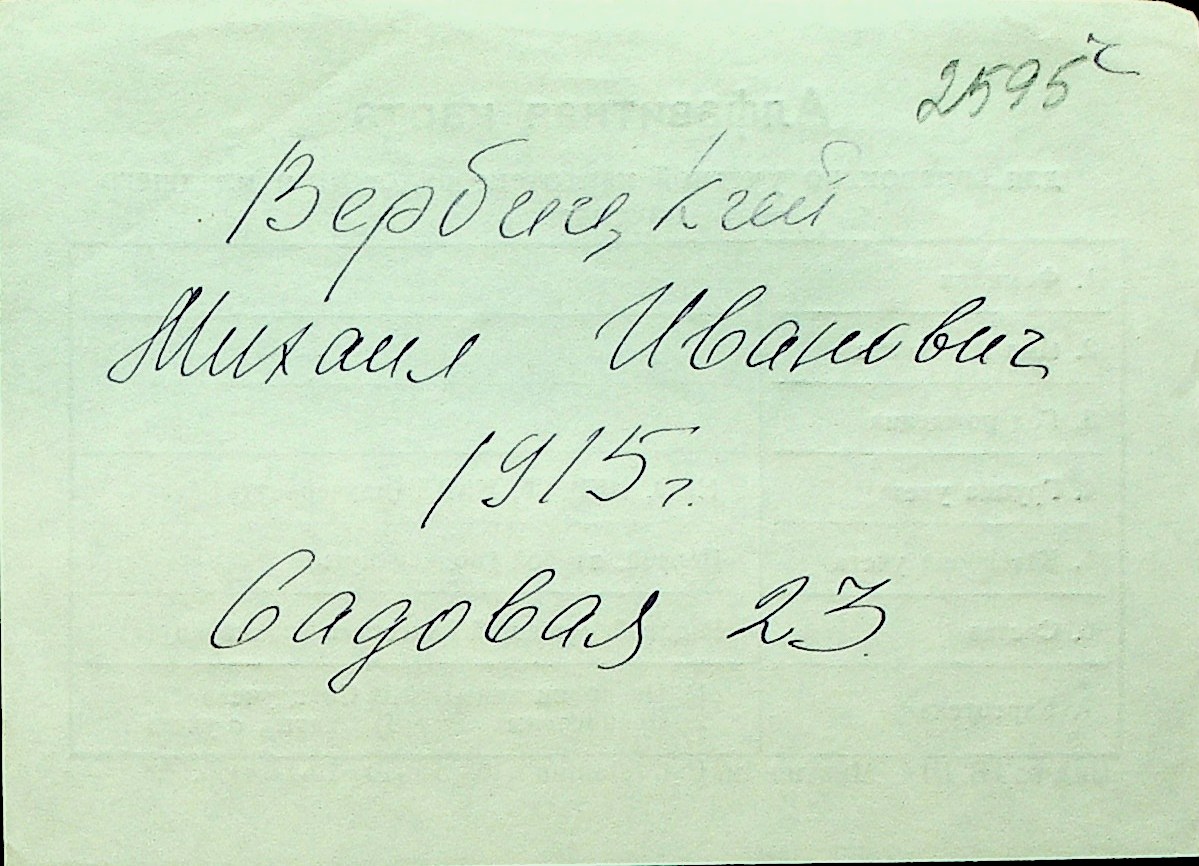 2595ч
Вербицкий
Михаил Иванович
1915г.
Садовая 23